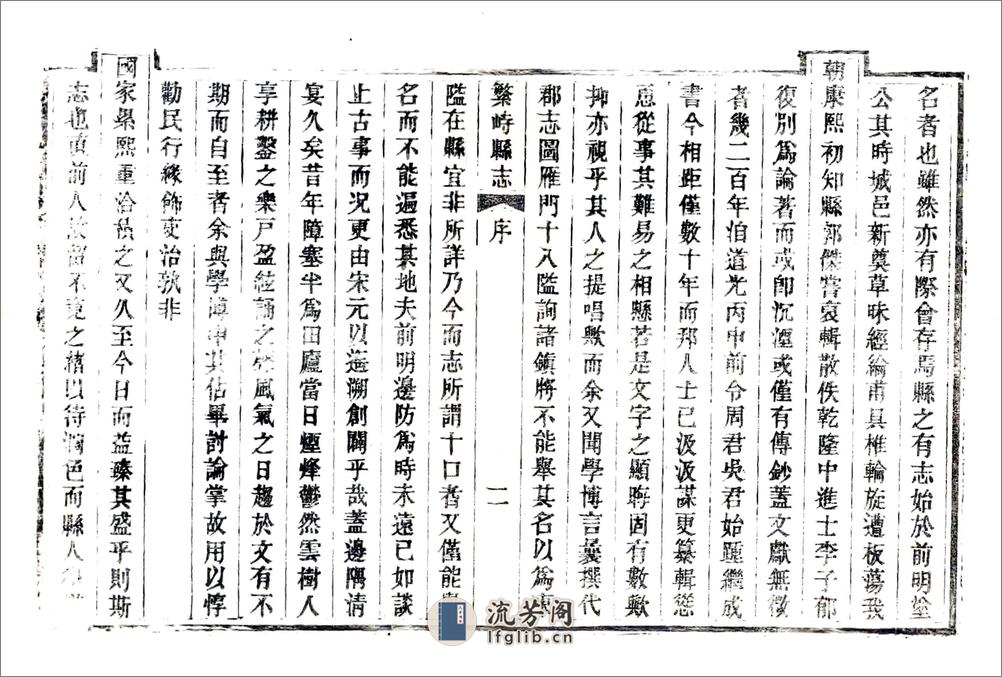 名者也雖然亦有際會存焉縣之有志始於前明涂
公其時城邑新奠草昧經綸甫具椎輪旋遭板蕩我
朝康熙初知縣郭傑嘗裒輯散佚乾隆中進士李子郁
復別爲論著而或卽沉湮或僅有傳鈔蓋文獻無徵
者幾二百年洎道光丙申前令周君吳君始踵繼成
書今相距僅數十年而邦人士已汲汲謀更纂輯慫
恿從事其難易之相懸若是文字之顯晦固有數歟
抑亦視乎其人之提唱歟而余又聞學博言曩撰代
郡志圖雁門十八隘詢諸鎮將不能舉其名以爲
繁峙縣志 序 二
隘在縣宜非所詳乃今而志所謂十口者又僅能
名而不能遍悉其地夫前明邊防爲時未遠已如談
上古事而况更由宋元以遥溯創闢乎哉蓋邊隅清
宴久矣昔年障塞半爲田廬當日煙烽鬱然雲樹人
享耕鑿之樂戸盈絃誦之 風氣之日趨於文有不
期而自至者余與學博申其佔畢討論掌故用以惇
勸民行緣飾吏治孰非
國家累熙重洽 之又久至今日而益臻其盛乎則斯
志也 前人 留不 之緒以待潤色而縣人
流芳阁
lfglib.cn